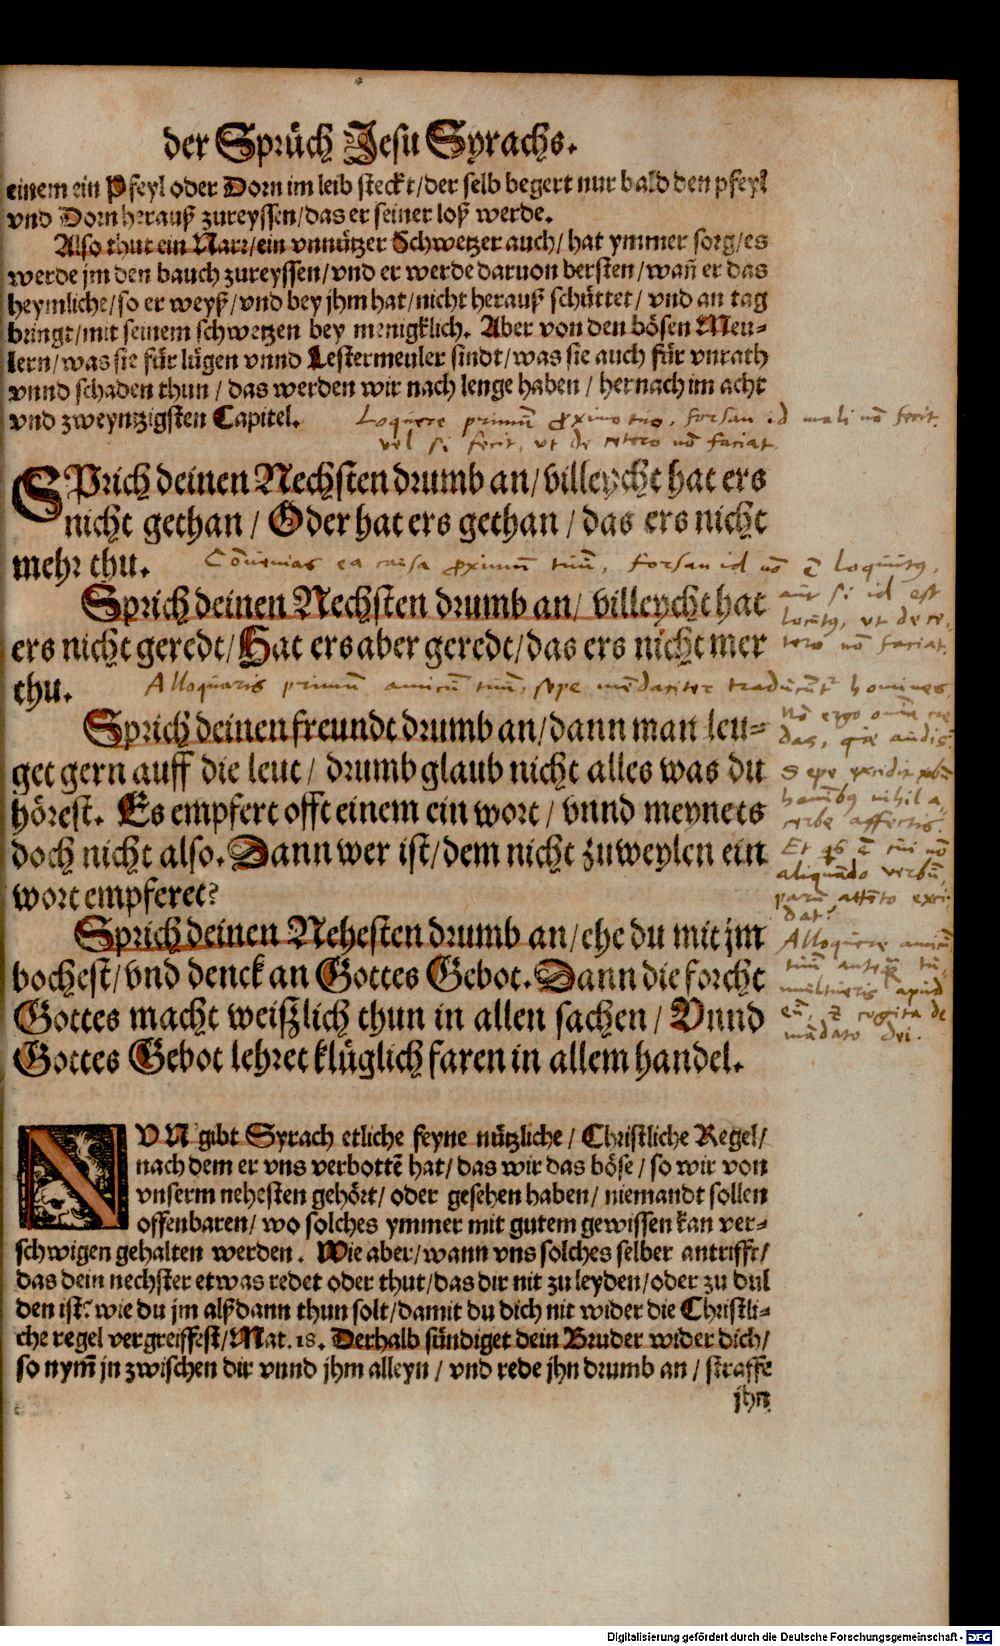 der Sprüch Jesu Syrachs.
einem ein Pfeyl oder Dorn im leib steckt/der selb begert nur bald den pfeyl
vnd Dorn herauß zureyssen/das er seiner loß werde.
Also thut ein Narr/ein vnnützer Schwetzer auch/hat ymmer sorg/es
werde jm den bauch zureyssen/vnd er werde daruon bersten/wañ er das
heymliche/so er weyß/vnd bey jhm hat/nicht herauß schüttet/vnd an tag
bringt/mit seinem schwetzen bey menigklich. Aber von den bösen Meu-
lern/was sie für lügen vnnd Lestermeuler sindt/was sie auch für vnrath
vnnd schaden thun/das werden wir nach lenge haben/hernach im acht
vnd zweyntzigsten Capitel.
Loquere primū ꝓximo tuo, forsan id mali nō fecit.
vel si fecit, vt de cetero nō faciat.
SPrich deinen Nechsten drumb an/villeycht hat ers
nicht gethan/Oder hat ers gethan/das ers nicht
mehr thu.
Cōuenias ea causa ꝓximū tuū, forsan id nō ē loquutus,
aut si id est
locutus, vt de ce-
tero nō faciat.
Sprich deinen Nechsten drumb an/villeycht hat
ers nicht geredt/Hat ers aber geredt/das ers nicht mer
thu.
Alloquaris primū amicū tuū, sepe mēdaciter traducūt homines,
Nō ergo omīa cre
das, quæ audis.
Sprich deinen freundt drumb an/dann man leu-
get gern auff die leut/drumb glaub nicht alles was du
hörest. Es empfert offt einem ein wort/vnnd meynets
doch nicht also. Dann wer ist/dem nicht zuweylen ein
wort empferet?
Sepe excidit
nihil a-
cerbe affectis.
aliquādo verbū
parū attēto exci-
dat?
Sprich deinen Nehesten drumb an/ehe du mit jm
bochest/vnd denck an Gottes Gebot. Dann die forcht
Gottes macht weißlich thun in allen sachen/Vnnd
Gottes Gebot lehret klüglich faren in allem handel.
Alloquere amicū
tuū anteq̄ tu-
multueris apud
eū, & cogita de
mādato dei.
NVN gibt Syrach etliche feyne nützliche/Christliche Regel/
nach dem er vns verbottē hat/das wir das böse/so wir von
vnserm nehesten gehört/oder gesehen haben/niemandt sollen
offenbaren/wo solches ymmer mit gutem gewissen kan ver-
schwigen gehalten werden. Wie aber/wann vns solches selber antrifft/
das dein nechster etwas redet oder thut/das dir nit zu leyden/oder zu dul
den ist? wie du jm alßdann thun solt/damit du dich nit wider die Christli-
che regel vergreiffest/Mat.18. Derhalb sündiget dein Bruder wider dich/
so nym̄ jn zwischen dir vnnd jhm alleyn/vnd rede jhn drumb an/straffe
jhn
Digitalisierung gefördert durch die Deutsche Forschungsgemeinschaft - DFG